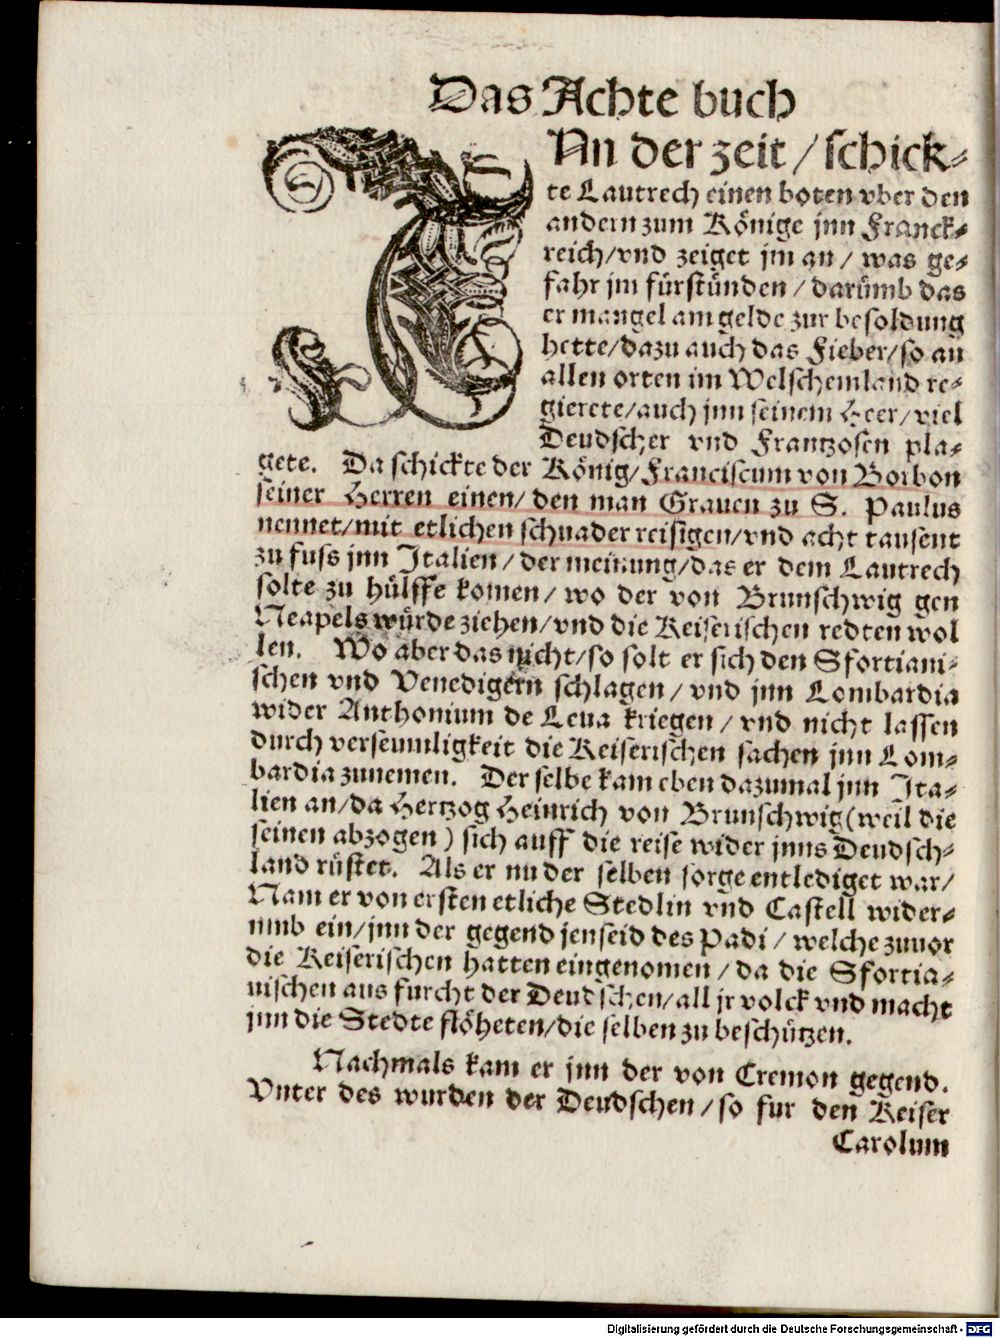 Das Achte buch
JNn der zeit / schick⸗
te Lautrech einen boten vber den
andern zum Könige jnn Franck⸗
reich/vnd zeiget jm an / was ge⸗
fahr jm fürstünden / darümb das
er mangel am gelde zur besoldung
hette/dazu auch das Fieber/so an
allen orten im Welschemland re⸗
gierete/auch jnn seinem Heer/viel
Deudscher vnd Frantzosen pla⸗
gete. Da schickte der König/Franciscum von Borbon
seiner Herren einen/ den man Grauen zu S. Paulus
nennet/mit etlichen schuader reisigen/vnd acht tausent
zu fuss jnn Italien / der meinung/das er dem Lautrech
solte zu hülffe komen/ wo der von Brunschwig gen
Neapels würde ziehen/vnd die Keiserischen redten wol
len. Wo aber das nicht/so solt er sich den Sfortiani⸗
schen vnd Venedigern schlagen / vnd jnn Lombardia
wider Anthonium de Leua kriegen / vnd nicht lassen
durch verseumligkeit die Keiserischen sachen jnn Lom⸗
bardia zunemen. Der selbe kam eben dazumal jnn Ita⸗
lien an/da Hertzog Heinrich von Brunschwig (weil die
seinen abzogen) sich auff die reise wider jnns Deudsch⸗
land rüstet. Als er nu der selben sorge entlediget war/
Nam er von ersten etliche Stedlin vnd Castell wider⸗
umb ein/jnn der gegend jenseid des Padi / welche zuuor
die Keiserischen hatten eingenomen / da die Sfortia⸗
nischen aus furcht der Deudschen/all jr volck vnd macht
jnn die Stedte flöheten/die selben zu beschützen.
Nachmals kam er jnn der von Cremon gegend.
Vnter des wurden der Deudschen / so fur den Keiser
Carolum
Digitalisierung gefördert durch die Deutsche Forschungsgemeinschaft - DFG